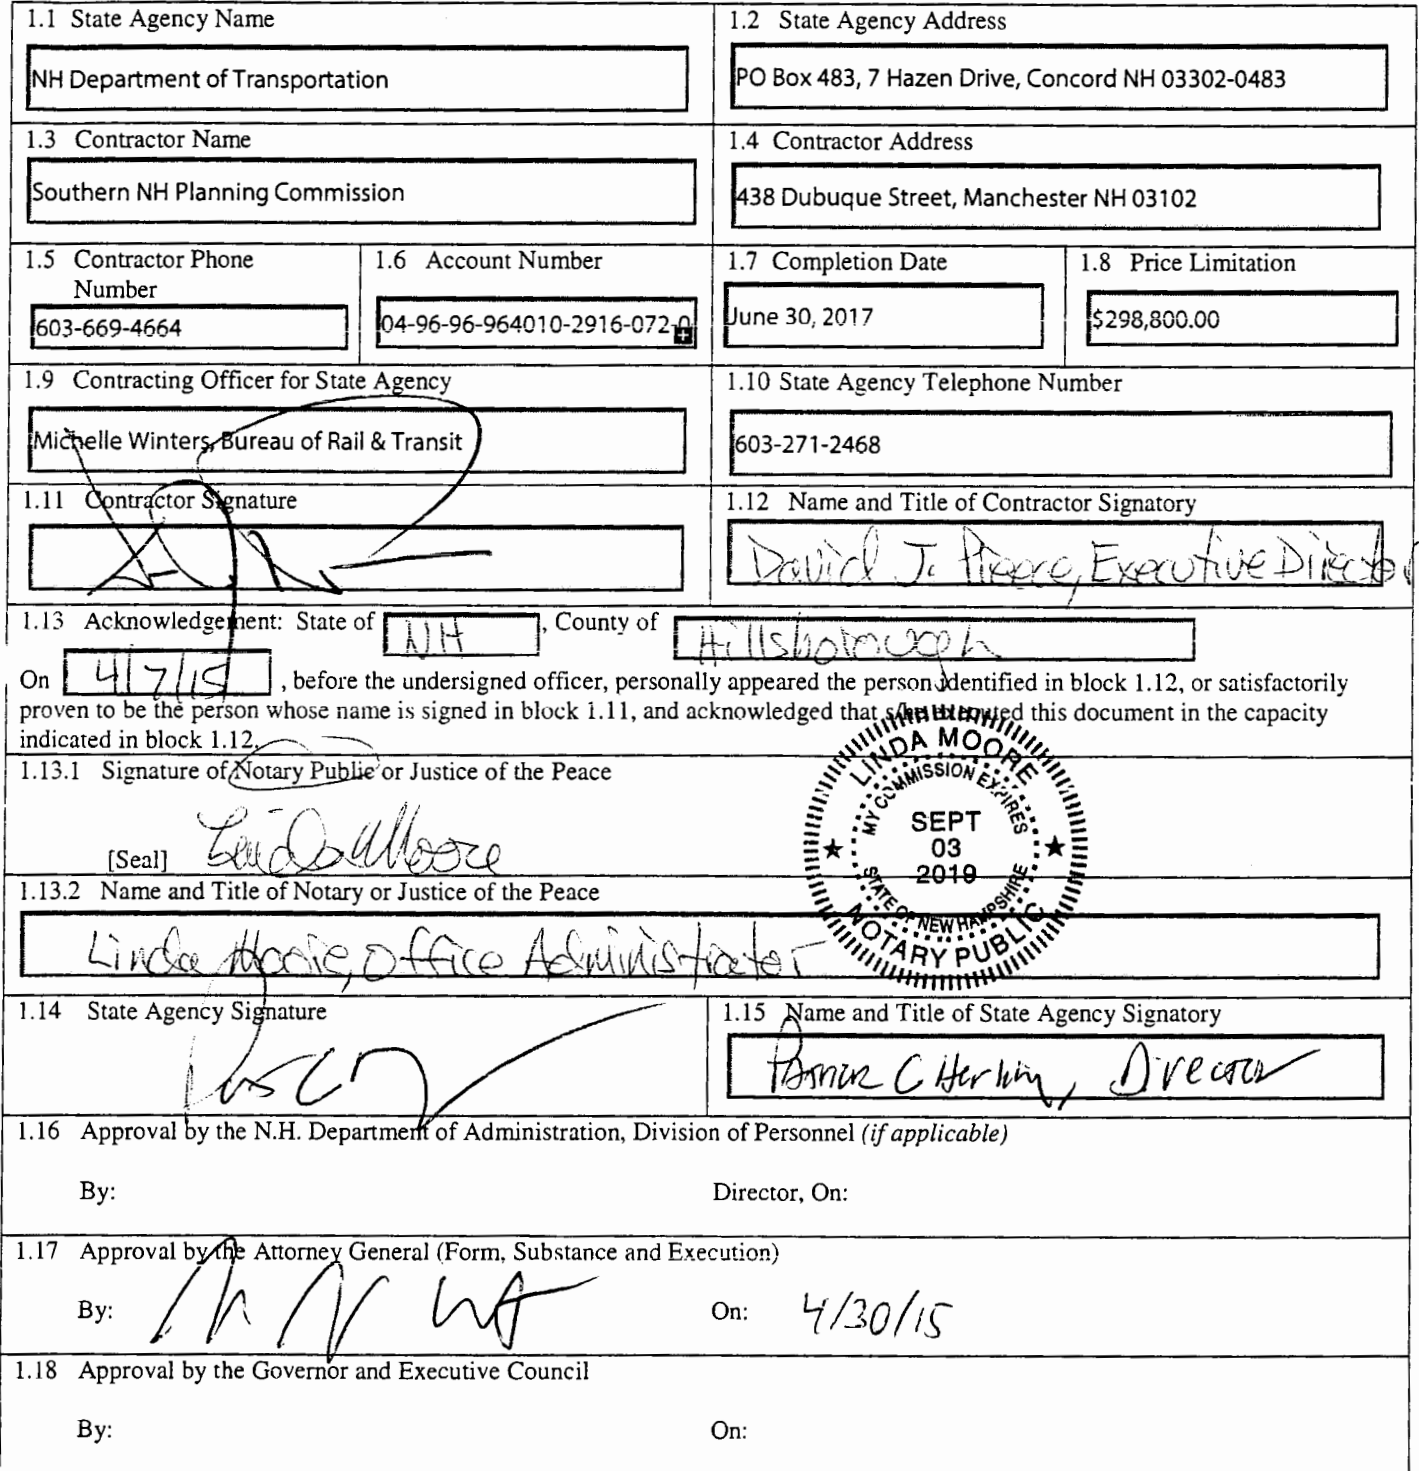 1.1 State Agency Name
NH Department of Transportation
1.2 State Agency Address
PO Box 483, 7 Hazen Drive, Concord NH 03302-0483
1.3 Contractor Name
Southern NH Planning Commission
1.4 Contractor Address
438 Dubuque Street, Manchester NH 03102
1.5 Contractor Phone
Number
603-669-4664
1.6 Account Number
04-96-96-964010-2916-072-0
1.7 Completion Date
June 30, 2017
1.8 Price Limitation
$298,800.00
1.9 Contracting Officer for State Agency
Michelle Winters, Bureau of Rail & Transit
1.10 State Agency Telephone Number
603-271-2468
1.11 Contractor Signature
1.12 Name and Title of Contractor Signatory
David J. Preece, Executive Director
1.13 Acknowledgement: State of NH, County of Hillsborough
On 4/7/15, before the undersigned officer, personally appeared the person identified in block 1.12, or satisfactorily
proven to be the person whose name is signed in block 1.11, and acknowledged that s/he executed this document in the capacity
indicated in block 1.12.
1.13.1 Signature of Notary Public or Justice of the Peace
[Seal] Linda Moore
LINDA MOORE
MY COMMISSION EXPIRES
SEPT
03
2019
STATE OF NEW HAMPSHIRE
NOTARY PUBLIC
1.13.2 Name and Title of Notary or Justice of the Peace
Linda Moore, Office Administrator
1.14 State Agency Signature
1.15 Name and Title of State Agency Signatory
Patrick C Herlihy, Director
1.16 Approval by the N.H. Department of Administration, Division of Personnel (if applicable)
By: Director, On:
1.17 Approval by the Attorney General (Form, Substance and Execution)
By: On: 4/30/15
1.18 Approval by the Governor and Executive Council
By: On: